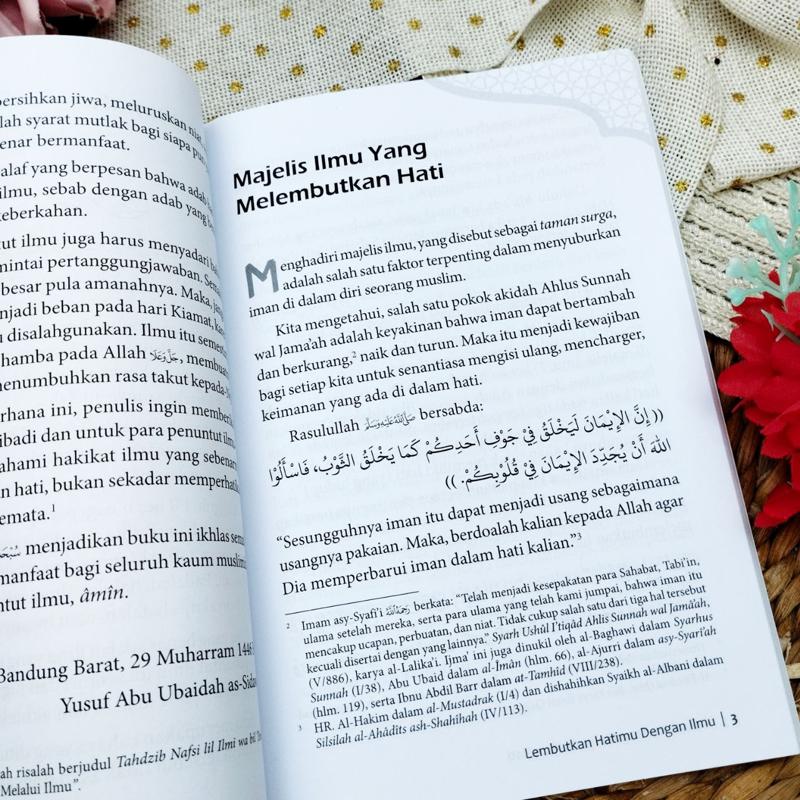 bersihkan jiwa, meluruskan
lah syarat mutlak bagi siapa
enar bermanfaat.
alaf yang berpesan bahwa adab
ilmu, sebab dengan adab yang
keberkahan.
tut ilmu juga harus menyadari
mintai pertanggungjawaban.
besar pula amanahnya. Maka,
njadi beban pada hari Kiamat,
u disalahgunakan. Ilmu itu
hamba pada Allah جَلَّ وَعَلَا,
menumbuhkan rasa takut
erhana ini, penulis ingin
ibadi dan untuk para penuntut
ahami hakikat ilmu yang
n hati, bukan sekadar
emata.¹
menjadikan buku ini ikhlas
manfaat bagi seluruh kaum
ntut ilmu, âmîn.
Bandung Barat, 29 Muharram
Yusuf Abu Ubaidah
ah risalah berjudul Tahdzib Nafsi lil Ilmi wa
Melalui Ilmu”.
Majelis Ilmu Yang
Melembutkan Hati
Menghadiri majelis ilmu, yang disebut sebagai taman surga,
adalah salah satu faktor terpenting dalam menyuburkan
iman di dalam diri seorang muslim.
Kita mengetahui, salah satu pokok akidah Ahlus Sunnah
wal Jama’ah adalah keyakinan bahwa iman dapat bertambah
dan berkurang,² naik dan turun. Maka itu menjadi kewajiban
bagi setiap kita untuk senantiasa mengisi ulang, mencharger,
keimanan yang ada di dalam hati.
Rasulullah صَلَّى اللهُ عَلَيْهِ وَسَلَّمَ bersabda:
(( إِنَّ الإِيْمَانَ لَيَخْلَقُ فِيْ جَوْفِ أَحَدِكُمْ كَمَا يَخْلَقُ الثَّوْبُ، فَاسْأَلُوْا
اللهَ أَنْ يُجَدِّدَ الإِيْمَانَ فِيْ قُلُوْبِكُمْ. ))
“Sesungguhnya iman itu dapat menjadi usang sebagaimana
usangnya pakaian. Maka, berdoalah kalian kepada Allah agar
Dia memperbarui iman dalam hati kalian.”³
² Imam asy-Syafi’i رَحِمَهُ اللهُ berkata: “Telah menjadi kesepakatan para Sahabat, Tabi’in,
ulama setelah mereka, serta para ulama yang telah kami jumpai, bahwa iman itu
mencakup ucapan, perbuatan, dan niat. Tidak cukup salah satu dari tiga hal tersebut
kecuali disertai dengan yang lainnya.” Syarh Ushûl I’tiqâd Ahlis Sunnah wal Jamâ’ah,
(V/886), karya al-Lalika’i. Ijma’ ini juga dinukil oleh al-Baghawi dalam Syarhus
Sunnah (I/38), Abu Ubaid dalam al-Îmân (hlm. 66), al-Ajurri dalam asy-Syarî’ah
(hlm. 119), serta Ibnu Abdil Barr dalam at-Tamhîd (VIII/238).
³ HR. Al-Hakim dalam al-Mustadrak (I/4) dan dishahihkan Syaikh al-Albani dalam
Silsilah al-Ahâdîts ash-Shahîhah (IV/113).
Lembutkan Hatimu Dengan Ilmu | 3